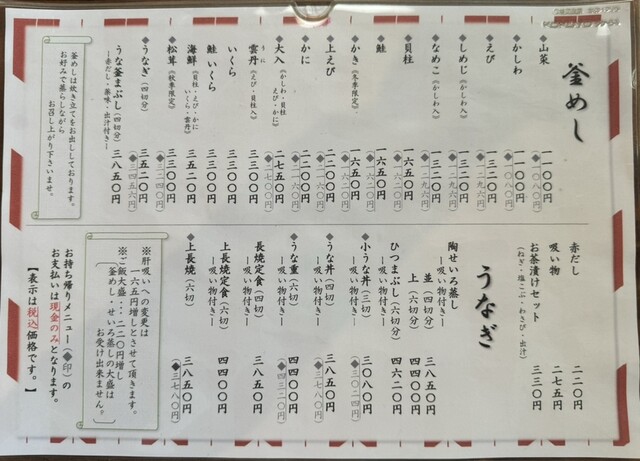 釜めし
◆山菜 一一〇〇円
◆かしわ 一一〇〇円
◆えび 一三二〇円
◆しめじ(かしわ入) 一三二〇円
◆なめこ(かしわ入) 一三二〇円
◆貝柱 一六五〇円
◆鮭 一六五〇円
◆かき(冬季限定) 一六五〇円
◆かに 二二〇〇円
◆上えび 二二〇〇円
◆大入(かしわ・貝柱 えび・かに) 二七五〇円
雲丹(えび・貝柱入) 三三〇〇円
いくら 三三〇〇円
鮭いくら 三三〇〇円
海鮮(貝柱・えび・かに いくら・雲丹)
◆松茸(秋季限定) 三三〇〇円
◆うなぎ(四切分) 三五二〇円
うな釜まぶし(四切分) 三八五〇円
ー赤だし・薬味・出汁付きー
釜めしは炊き立てをお出ししております。
お好みで蒸らしながら
お召し上がり下さいませ。
赤だし 二二〇円
吸い物 二七五円
お茶漬けセット 三三〇円
(ねぎ・塩こぶ・わさび・出汁)
うなぎ
陶せいろ蒸し ー吸い物付きー
並(四切分) 三八五〇円
上(六切分) 四四〇〇円
ひつまぶし(六切分) 四六二〇円
ー吸い物付きー
◆小うな丼(三切) 三〇八〇円
ー吸い物付きー
◆うな丼(四切) 三八五〇円
ー吸い物付きー
◆うな重(六切) 四四〇〇円
ー吸い物付きー
長焼定食(四切) 三八五〇円
ー吸い物付きー
上長焼定食(六切) 四四〇〇円
ー吸い物付きー
◆上長焼(六切) 三八五〇円
※肝吸いへの変更は
一六五円増しとさせて頂きます。
※ご飯大盛・・・二二〇円増し
釜めし・せいろ蒸しの大盛は
お受け出来ません。
お持ち帰りメニュー(◆印)の
お支払いは現金のみとなります。
【表示は税込価格です。】